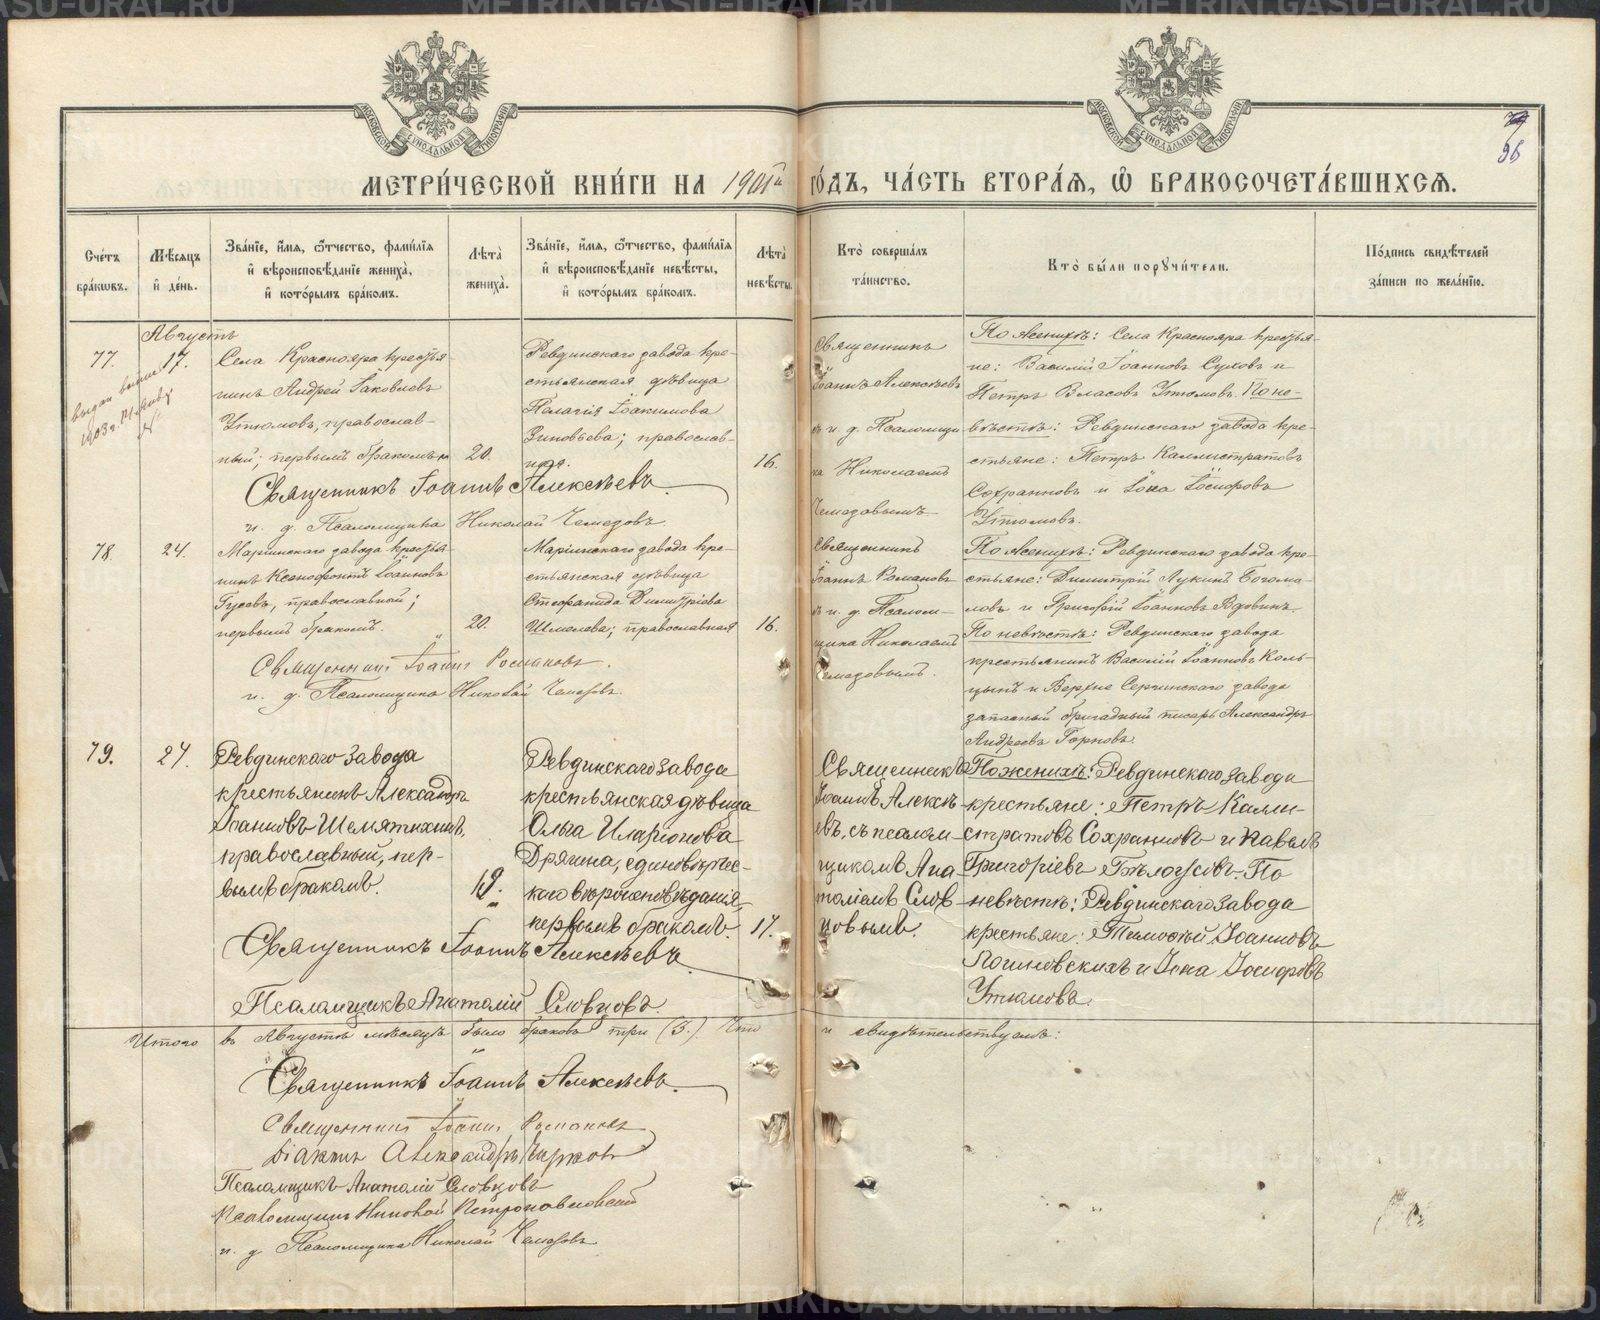 МЕТРИ́ЧЕСКОЙ КНИ́ГИ НА 1901й ГО́ДЪ, ЧА́СТЬ ВТОРА́Я, Ѡ҆ БРАКОСОЧЕТА́ВШИХСЯ.
96
Сче́тъ бра́кωвъ.
Мѣ́сяцъ и҆ де́нь.
Зва́нїе, и҆́мя, ѻ҆́тчество, фами́лїя и҆ вѣроисповѣ́данїе жениха̀, и҆ кото́рымъ бра́комъ.
Лѣта̀ жениха̀.
Зва́нїе, и҆́мя, ѻ҆́тчество, фами́лїя и҆ вѣроисповѣ́данїе невѣ́сты, и҆ кото́рымъ бра́комъ.
Лѣта̀ невѣ́сты.
Кто̀ соверша́лъ та́инство.
Кто̀ бы́ли поручи́тели.
По́дпись свидѣ́телей за́писи по жела́нїю.
Августъ
77.
17.
Села Краснояра крестья-
нинъ Андрей Iаковлевъ
Утюмовъ, православ-
ный; первымъ бракомъ
20.
Ревдинскаго завода кре-
стьянская дѣвица
Пелагiя Iоакимова
Зиновьева; православ-
ная.
16.
Священникъ
Iоаннъ Алексѣевъ
съ и. д. Псаломщи
ка Николаемъ
Чемодовымъ
По женихѣ: Села Краснояра крестья-
не: Василiй Iоанновъ Суховъ и
Петръ Власовъ Утюмовъ. По не-
вѣстѣ: Ревдинскаго завода кре-
стьяне: Петръ Каллистратовъ
Сохранновъ и Iона Iосифовъ
Утюмовъ.
Священникъ Iоаннъ Алексѣевъ.
и. д. Псаломщика Николай Чемодовъ.
78.
24.
Марiинскаго завода крестья-
нинъ Ксенофонтъ Iоанновъ
Гусевъ, православный;
первымъ бракомъ.
20.
Марiинскаго завода кре-
стьянская дѣвица
Стефанида Димитрiева
Шмелева; православная
16.
Священникъ
Iоаннъ Романовъ
съ и. д. Псалом-
щика Николаемъ
Чемодовымъ.
По женихѣ: Ревдинскаго завода кре-
стьяне: Димитрiй Лукинъ Богома-
ловъ и Григорiй Iоанновъ Вдовинъ.
По невѣстѣ: Ревдинскаго завода
крестьянинъ Василiй Iоанновъ Коль-
цынъ и Верхне Сергинскаго завода
запасный бригадный писарь Александръ
Андреевъ Горновъ.
Священникъ Iоаннъ Романовъ.
и. д. Псаломщика Николай Чемодовъ.
79.
27.
Ревдинскаго завода
крестьянинъ Александръ
Iоанновъ Шемятихинъ,
православный, пер-
вымъ бракомъ.
19.
Ревдинскаго завода
крестьянская дѣвица
Ольга Иларiонова
Дрягина, единовѣрчес-
каго вѣроисповѣданiя,
первымъ бракомъ.
17.
Священникъ
Iоаннъ Алексѣ
евъ, съ псалом-
щикомъ Ана
толiемъ Слов-
цовымъ.
По женихѣ: Ревдинскаго завода
крестьяне: Петръ Калли-
стратовъ Сохранновъ и Павелъ
Григорiевъ Бѣлоусовъ. По
невѣстѣ: Ревдинскаго завода
крестьяне: Тимофей Iоанновъ
Логиновскихъ и Iона Iосифовъ
Утюмовъ.
Священникъ Iоаннъ Алексѣевъ.
Псаломщикъ Анатолiй Словцовъ.
Итого въ Августѣ мѣсяцѣ было браковъ три (3.) Что и свидѣтельствуемъ:
Священникъ Iоаннъ Алексѣевъ.
Священникъ Iоаннъ Романовъ
Дiаконъ Александръ
Псаломщикъ Анатолiй Словцовъ
Псаломщикъ Николай Петропавловскiй
и. д. Псаломщика Николай Чемодовъ
METRIKI.GASU-URAL.RU